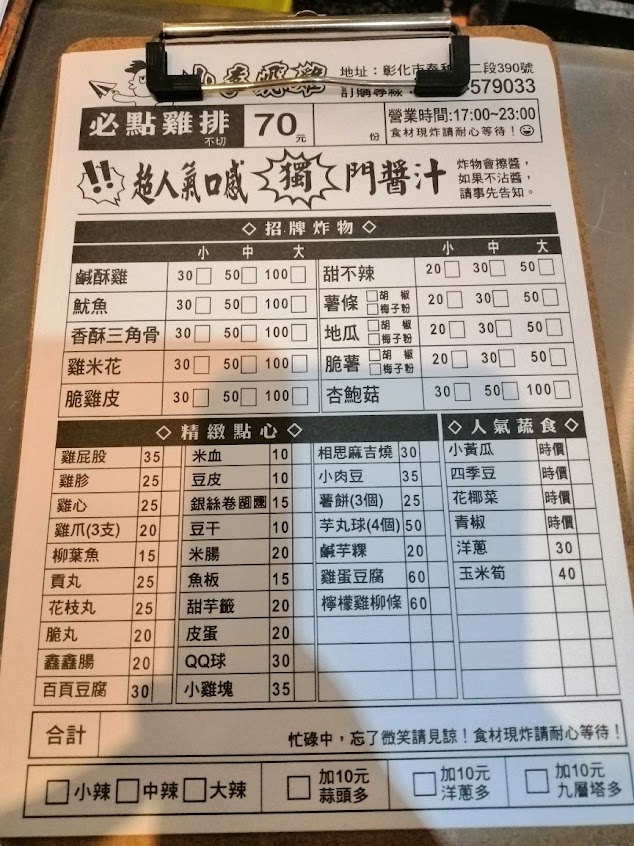 地址：彰化市泰和 二段390號
訂購專線 579033
必點雞排 不切 70元 份
營業時間:17:00~23:00
食材現炸請耐心等待！
!! 超人氣口感 獨門醬汁
炸物會擦醬，
如果不沾醬，
請事先告知。
◇招牌炸物◇
小 中 大 小 中 大
鹹酥雞 30 50 100 甜不辣 20 30 50
魷魚 30 50 100 薯條 胡椒 梅子粉 20 30 50
香酥三角骨 30 50 100 地瓜 胡椒 梅子粉 20 30 50
雞米花 30 50 100 脆薯 胡椒 梅子粉 20 30 50
脆雞皮 30 50 100 杏鮑菇 30 50 100
◇精緻點心◇ ◇人氣蔬食◇
雞屁股 35 米血 10 相思麻吉燒 30 小黃瓜 時價
雞胗 25 豆皮 10 小肉豆 35 四季豆 時價
雞心 25 銀絲卷 15 薯餅(3個) 25 花椰菜 時價
雞爪(3支) 20 豆干 10 芋丸球(4個) 50 青椒 時價
柳葉魚 15 米腸 20 鹹芋粿 20 洋蔥 30
貢丸 25 魚板 15 雞蛋豆腐 60 玉米筍 40
花枝丸 25 甜芋籤 20 檸檬雞柳條 60
脆丸 20 皮蛋 20
鑫鑫腸 20 QQ球 30
百頁豆腐 30 小雞塊 35
合計 忙碌中，忘了微笑請見諒！食材現炸請耐心等待！
小辣 中辣 大辣 加10元 蒜頭多 加10元 洋蔥多 加10元 九層塔多